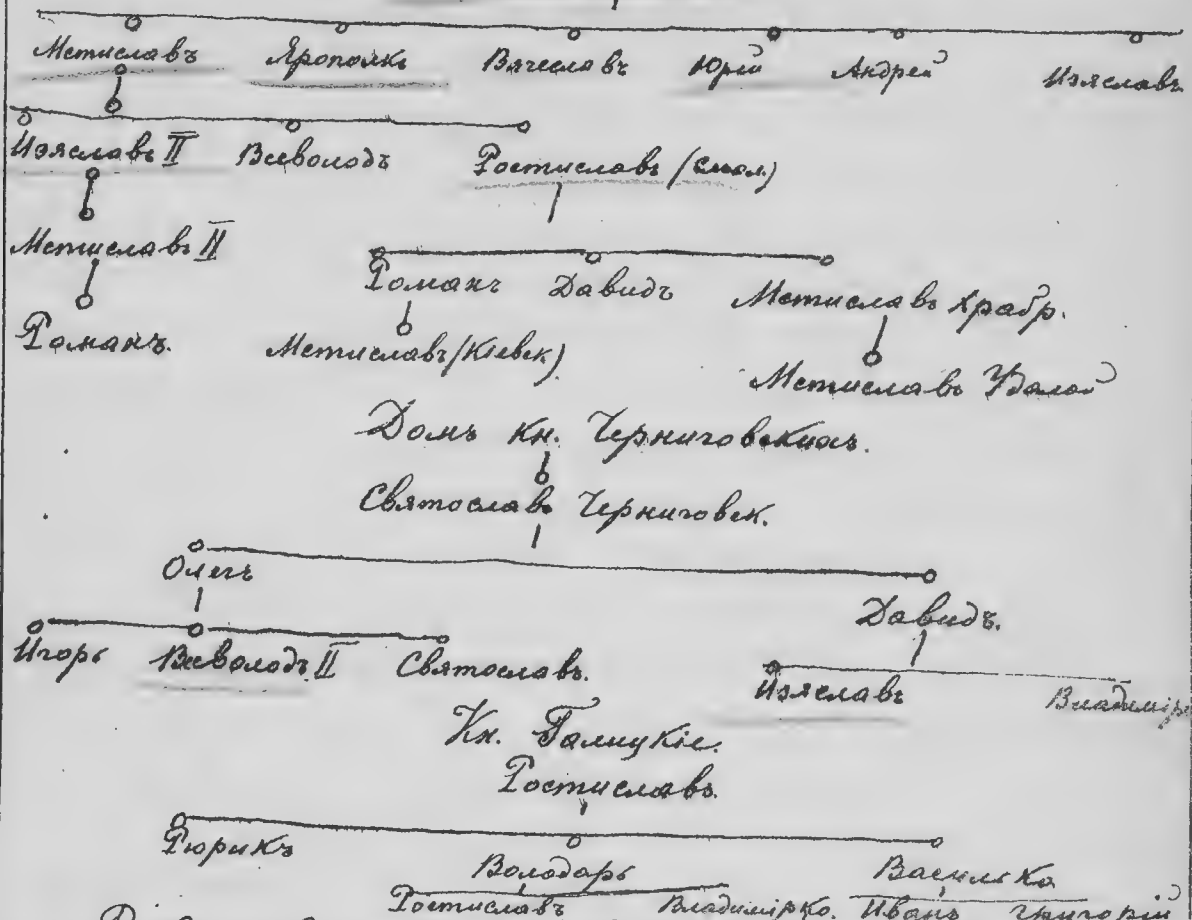 Мстиславъ Ярополкъ Вячеславъ Юрій Андрей Изяславъ
Изяславъ II Всеволодъ Ростиславъ (смол.)
Мстиславъ II
Романъ Давидъ Мстиславъ Храбр.
Романъ. Мстиславъ (Кіевск)
Мстиславъ Удалой
Домъ кн. Черниговскихъ.
Святославъ Черниговск.
Олегъ Давидъ.
Игорь Всеволодъ II Святославъ. Изяславъ Владиміръ
Кн. Галицкіе.
Ростиславъ.
Рюрикъ Володарь Василько
Ростиславъ Владимірко. Иванъ Григорій